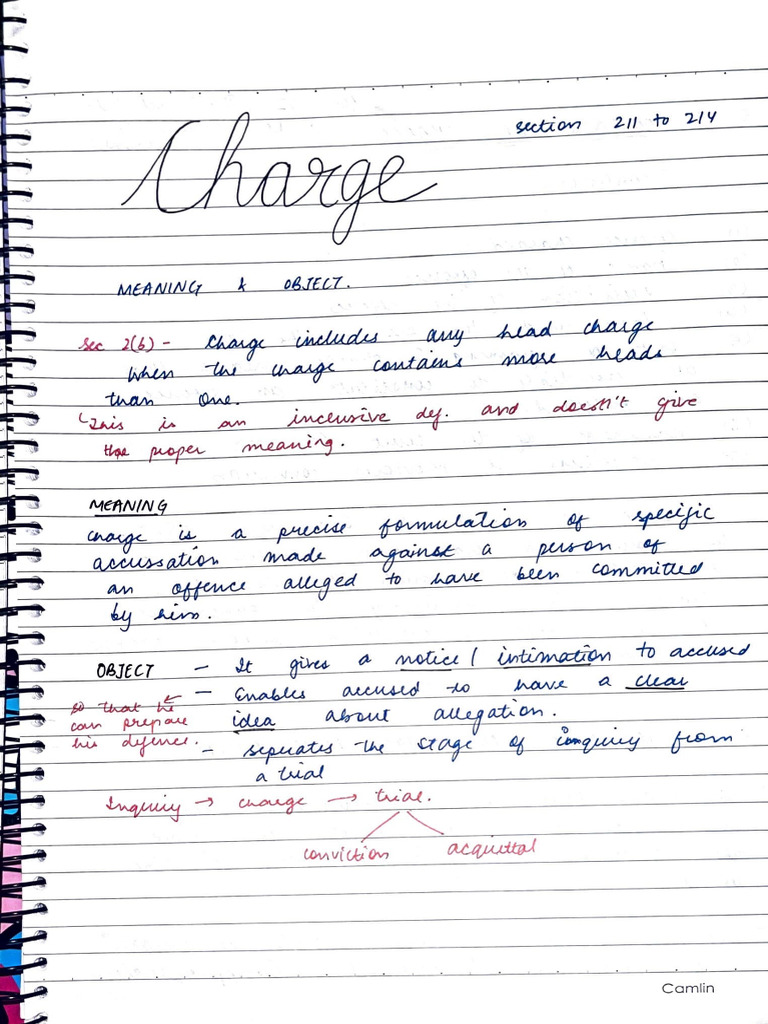 section 211 to 214
Charge
MEANING & OBJECT.
Sec 2(b) - Charge includes any head charge
when the charge contains more heads
than one.
This is an inclusive def. and doesn't give
the proper meaning.
MEANING
Charge is a precise formulation of specific
accussation made against a person of
an offence alleged to have been committed
by him.
OBJECT - It gives a notice / intimation to accused
- Enables accused to have a clear
idea about allegation.
so that he
can prepare
his defence.
- seperates the stage of inquiry from
a trial
Inquiry → charge → trial.
conviction acquittal
Camlin